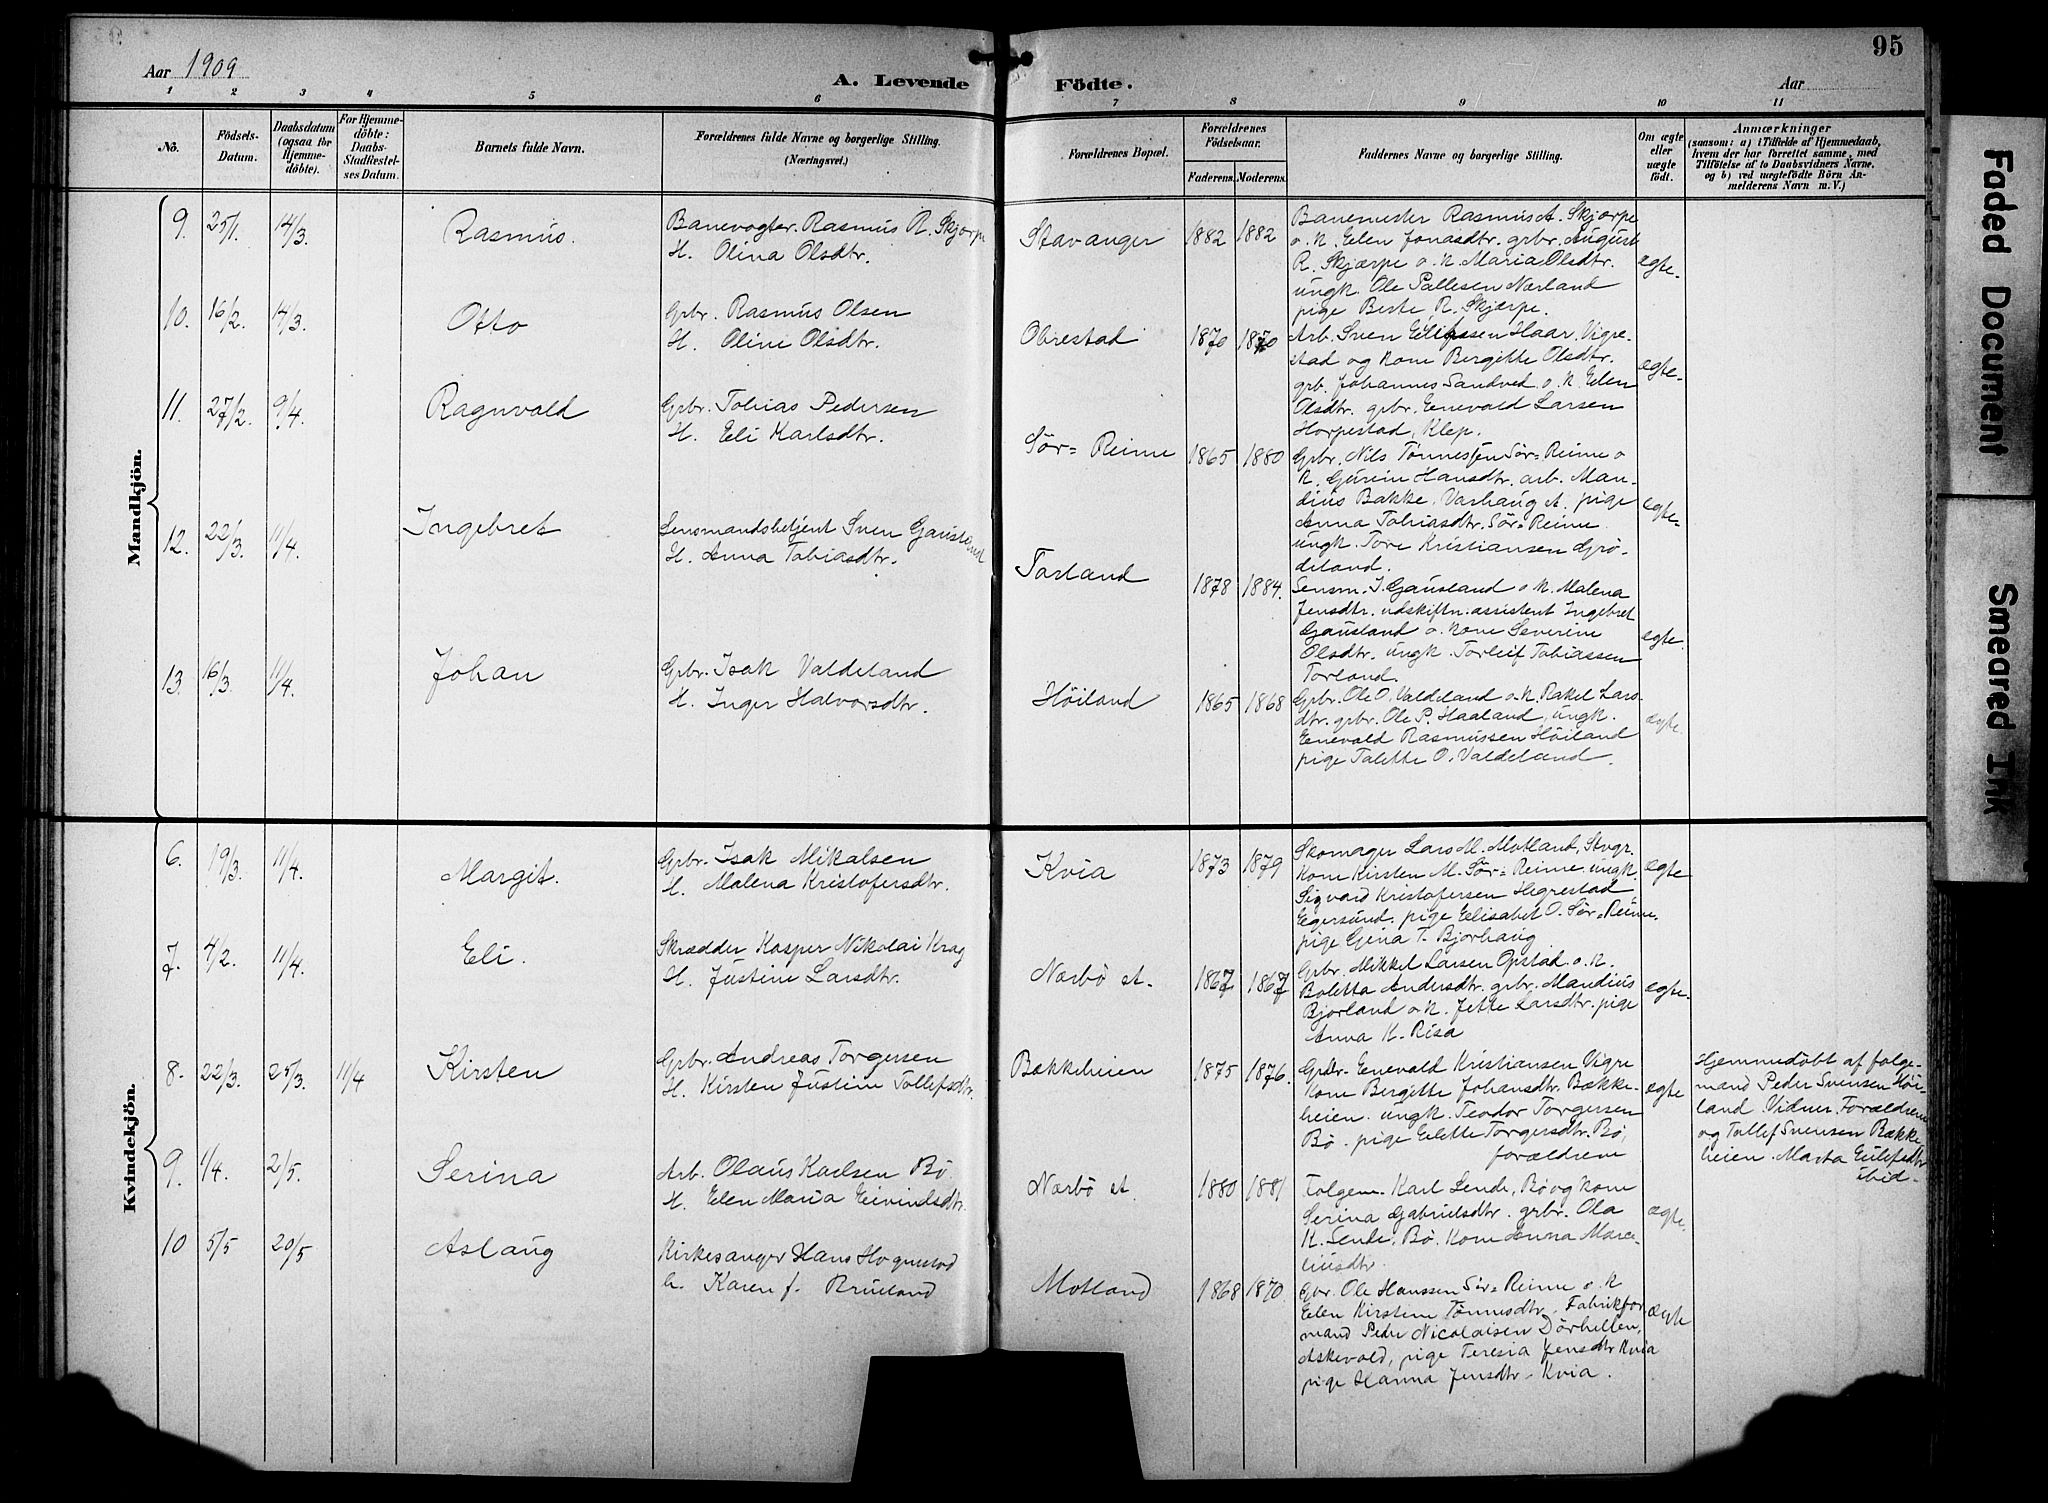 Aar 1909
A. Levende Födte.
Aar
95
1 2 3 4 5 6 7 8 9 10 11
No.
Födsels-
Datum.
Daabsdatum
(ogsaa for
Hjemme-
döbte).
For Hjemme-
döbte:
Daabs-
Stadfæstel-
ses Datum.
Barnets fulde Navn.
Forældrenes fulde Navne og borgerlige Stilling.
(Næringsvei.)
Forældrenes Bopæl.
Forældrenes
Födselsaar.
Faderens. Moderens.
Faddernes Navne og borgerlige Stilling.
Om ægte
eller
uægte
födt.
Anmærkninger
(saasom: a) i Tilfælde af Hjemmedaab,
hvem der har forrettet samme, med
Tilföielse af to Daabsvidners Navne,
og b) ved uægtefödte Börn An-
melderens Navn m. V.)
Mandkjön.
9. 25/1. 14/3. Rasmus.
Banevogter. Rasmus R. Skjærpe
H. Olina Olsdtr.
Stavanger 1882 1882
Banemester Rasmus A. Skjærpe
o. K. Elen Jonasdtr. grbr. August
R. Skjærpe o. K. Maria Olsdtr.
ungk. Ole Pallesen Nærland
pige Berte R. Skjærpe.
ægte.
10. 16/2. 14/3. Otto
Grbr. Rasmus Olsen
H. Oline Olsdtr.
Obrestad 1870 1870
Arb. Sven Haar, Vigre-
stad og Kone Bergitte Olsdtr.
grb. Johannes Sandved o. K. Elen
Olsdtr. grbr. Enevald Larsen
Horpestad, Klep.
ægte.
11. 27/2. 9/4. Ragnvald
Grbr. Tobias Pedersen
H. Eli Karlsdtr.
Sör-Reime 1865 1880
Grbr. Nils Tönnessen Sör-Reime o
K. Gurine Hansdtr. arb. Man-
dius Bakke, Varhaug A. pige
Anna Tobiasdtr. Sör-Reime.
ungk. Tore Kristiansen Grö-
deland.
ægte.
12. 22/3. 11/4. Ingebret
Lensmandsbetjent Sven Gausland
H. Anna Tobiasdtr.
Torland 1878 1884.
Lensm. I. Gausland o. K. Malena
Jensdtr. udskiftn.assistent Ingebret
Gausland o. Kone Severine
Olsdtr. ungk. Torleif Tobiassen
Torland.
ægte.
13. 16/3. 11/4. Johan
Grbr. Isak Valdeland
H. Inger Halvorsdtr.
Höiland 1865 1868
Grbr. Ole O. Valdeland o. K. Rakel Lars-
dtr. grbr. Ole P. Haaland, ungk.
Enevald Rasmussen Höiland
pige Talette O. Valdeland.
ægte.
Kvindekjön.
6. 19/3. 11/4. Margit.
Grbr. Isak Mikalsen
H. Malena Kristofersdtr.
Kvia 1873 1879
Skomager Lars M. Motland, Stvgr.
Kone Kirsten M. Sör-Reime. ungk.
Sigvard Kristofersen Hegrestad
Egersund. pige Elisabet O. Sör-Reime.
pige Gina T. Bjorhaug
ægte
7. 4/2. 11/4. Eli.
Skrædder Kasper Nikolai Krag
H. Justine Larsdtr.
Nærbö st. 1867 1867
Grbr. Mikkel Larsen Opstad o. K.
Boletta Andersdtr. grbr. Mandius
Bjorland o. K. Jette Larsdtr. pige
Anna K. Risa
ægte.
8. 22/3. 25/3. 11/4 Kirsten
Grbr. Andreas Torgersen
H. Kirsten Justine Tollefsdtr.
Bækkeheien 1875 1876.
Grbr. Enevald Kristiansen Vigre
Kone Bergitte Johansdtr. Bække-
heien. ungk. Teodor Torgersen
Bö. pige Elette Torgersdtr. Bö,
forældrene
ægte
Hjemmedöbt af folge-
mand Peder Svensen Höi-
land. Vidner. Forældrene
og Tollef Svensen Bække-
heien. Marta Eilefsdtr
ibid.
9. 1/4. 2/5. Serina
Arb. Olaus Karlsen Bö
H. Elen Maria Eivindsdtr.
Nærbö st. 1880 1881
Folgem. Karl Lende, Bö og Kone
Serina Gabrielsdtr. grbr. Ola
K. Lende, Bö. Kone Anna Mare-
liusdtr.
ægte.
10 5/5 20/5 Aslaug
Kirkesanger Hans Hognestad
h. Karen f. Brueland
Motland 1868 1870.
Gbr. Ole Hanssen Sör-Reime o. K
Elen Kirstine Tönnesdtr. Fabrikfor-
mand Peder Nicolaisen Dörhellen,
Askevold, pige Teresia Jensdtr Kvia
pige Hanna Jensdtr. Kvia.
ægte
Faded Document
Smeared Ink